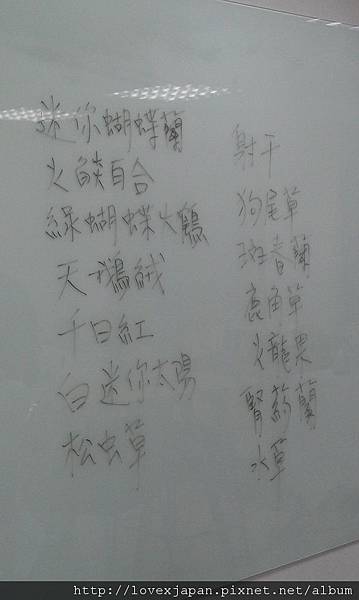 迷你蝴蝶蘭
火焰百合
綠蝴蝶火鶴
天鵝絨
千日紅
白迷你太陽
松虫草
射干
狗尾草
斑春蘭
鹿角草
火龍果
腎葯蘭
水草
http://lovexjapan.pixnet.net/album